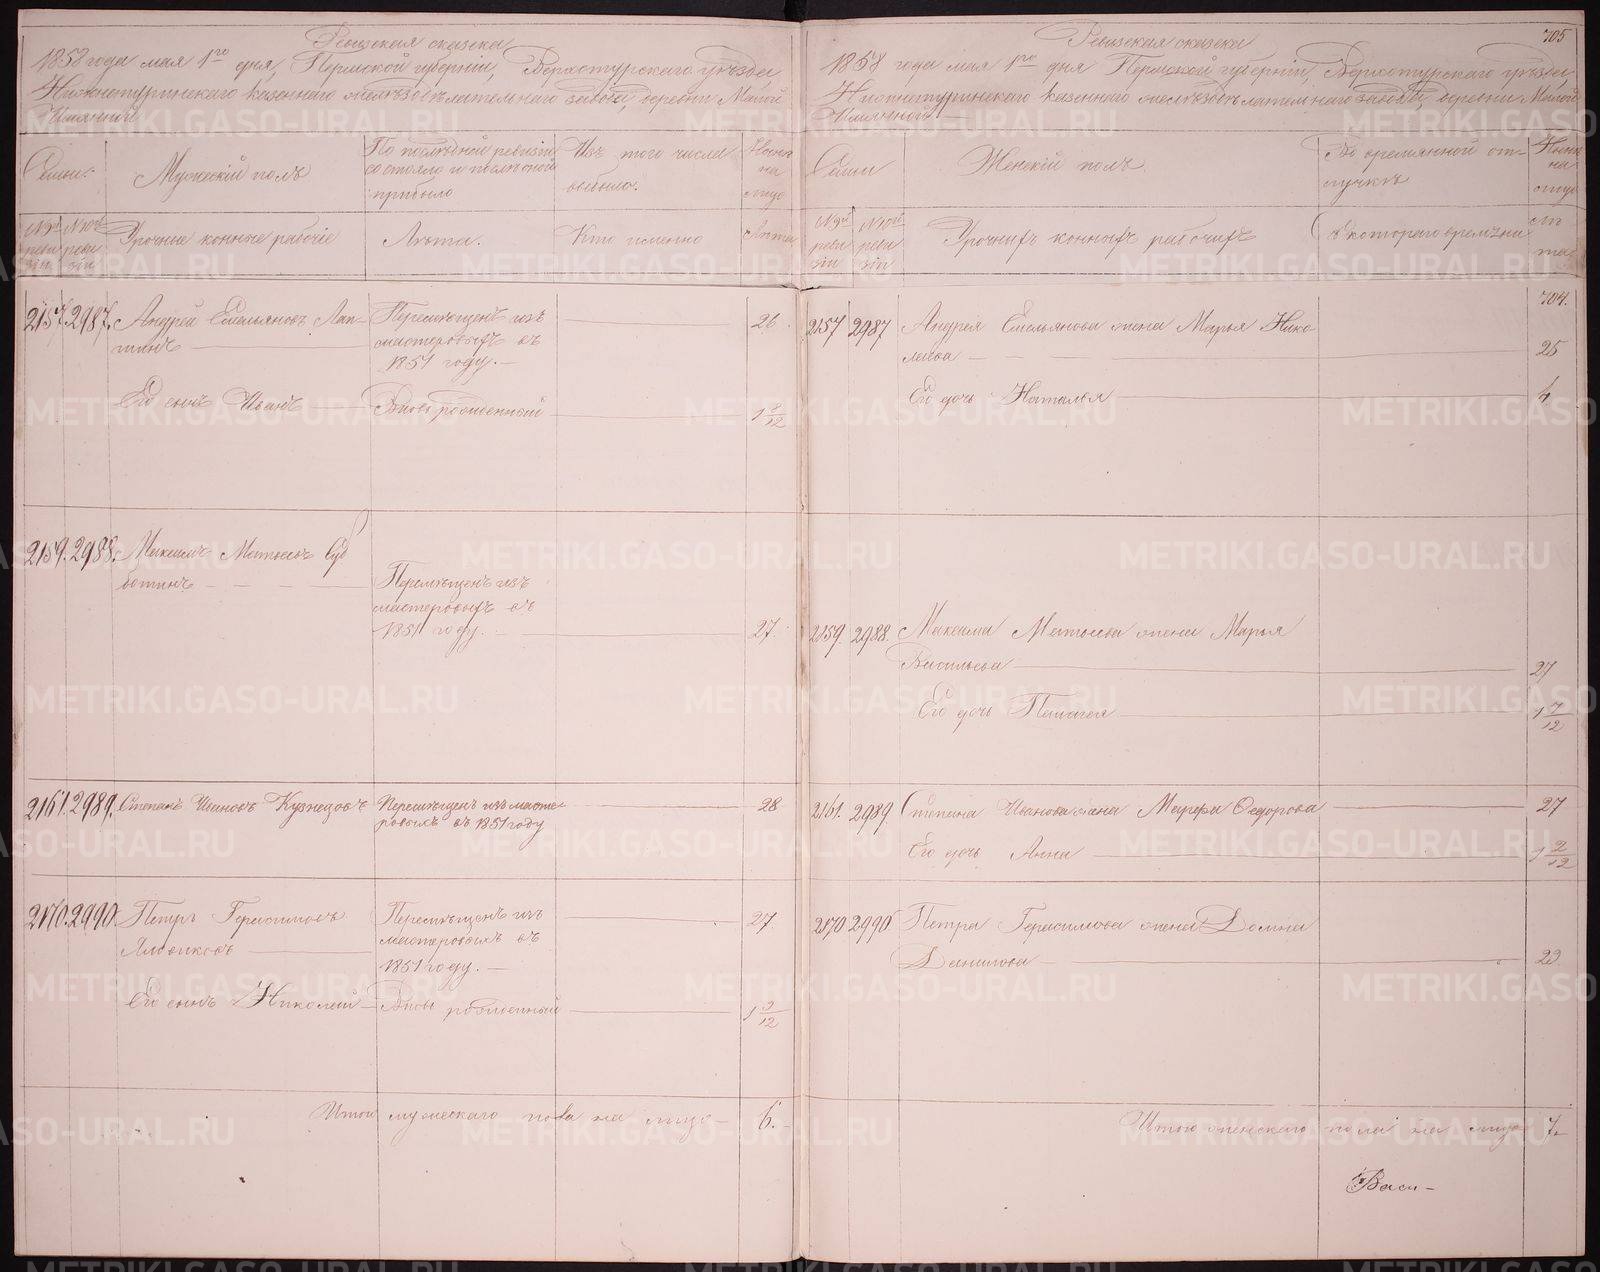 Ревизская сказка
1858 года мая 1го дня, Пермской губернiи, Верхотурскаго уѣзда
Нижнетуринскаго казеннаго желѣзодѣлательнаго завода, деревни Малой
Именной
Семьи. Мужескiй полъ По послѣдней ревизiи состояло и послѣ оной прибыло Изъ того числа выбыло. Нынѣ на лицо
№ 9й ревизiи № 10й ревизiи Урочные конные рабочiе Лѣта. Кто именно Лѣта
2157. 2987. Андрей Емельяновъ Лап- Перемѣщенъ изъ 26.
тинъ мастеровыхъ въ
1851 году.
Его сынъ Иванъ Вновь рожденный 1 3/12
2159. 2988. Максимъ Матвѣевъ Суб
ботинъ Перемѣщенъ изъ
мастеровыхъ въ
1851 году. 27.
2161. 2989. Степанъ Ивановъ Кузнецовъ Перемѣщенъ изъ масте- 28
ровыхъ въ 1851 году
2170. 2990. Петръ Герасимовъ Перемѣщенъ изъ 27.
мастеровыхъ въ
1851 году.
Его сынъ Николай Вновь рожденный 1 3/12
Итого мужескаго пола на лицо 6.
705
Ревизская сказка
1858 года мая 1го дня Пермской губернiи, Верхотурскаго уѣзда
Нижнетуринскаго казеннаго желѣзодѣлательнаго завода, деревни Малой
Именной
Семьи Женскiй полъ. Во временной отлучкѣ Нынѣ на лицо
№ 9й ревизiи № 10й ревизiи Урочныхъ конныхъ рабочихъ Съ котораго времѣни Лѣта
704.
2157 2987 Андрея Емельянова жена Марья Нико
лаева 25
Его дочь Наталья 4
2159. 2988. Максима Матвѣева жена Марья
Васильева 27
Его дочь Пелагея 1 7/12
2161. 2989 Степана Иванова жена Марфа Федорова 27
Его дочь Анна 1 2/12
2170 2990 Петра Герасимова жена Домна
Данилова 23
Итого женскаго пола на лицо 7.
Васи-
METRIKI.GASO-URAL.RU